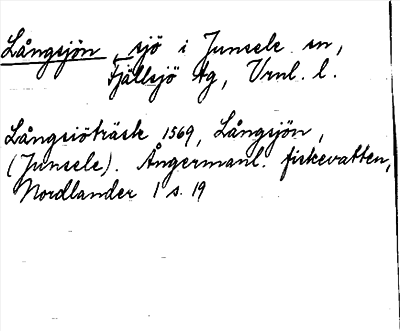 Långsjön, sjö i Junsele sn,
Fjällsjö tg, Vrnl. l.
Långsiöträsk 1569, Långsjön,
(Junsele). Ångermanl. fiskevatten,
Nordlander 1 s. 19